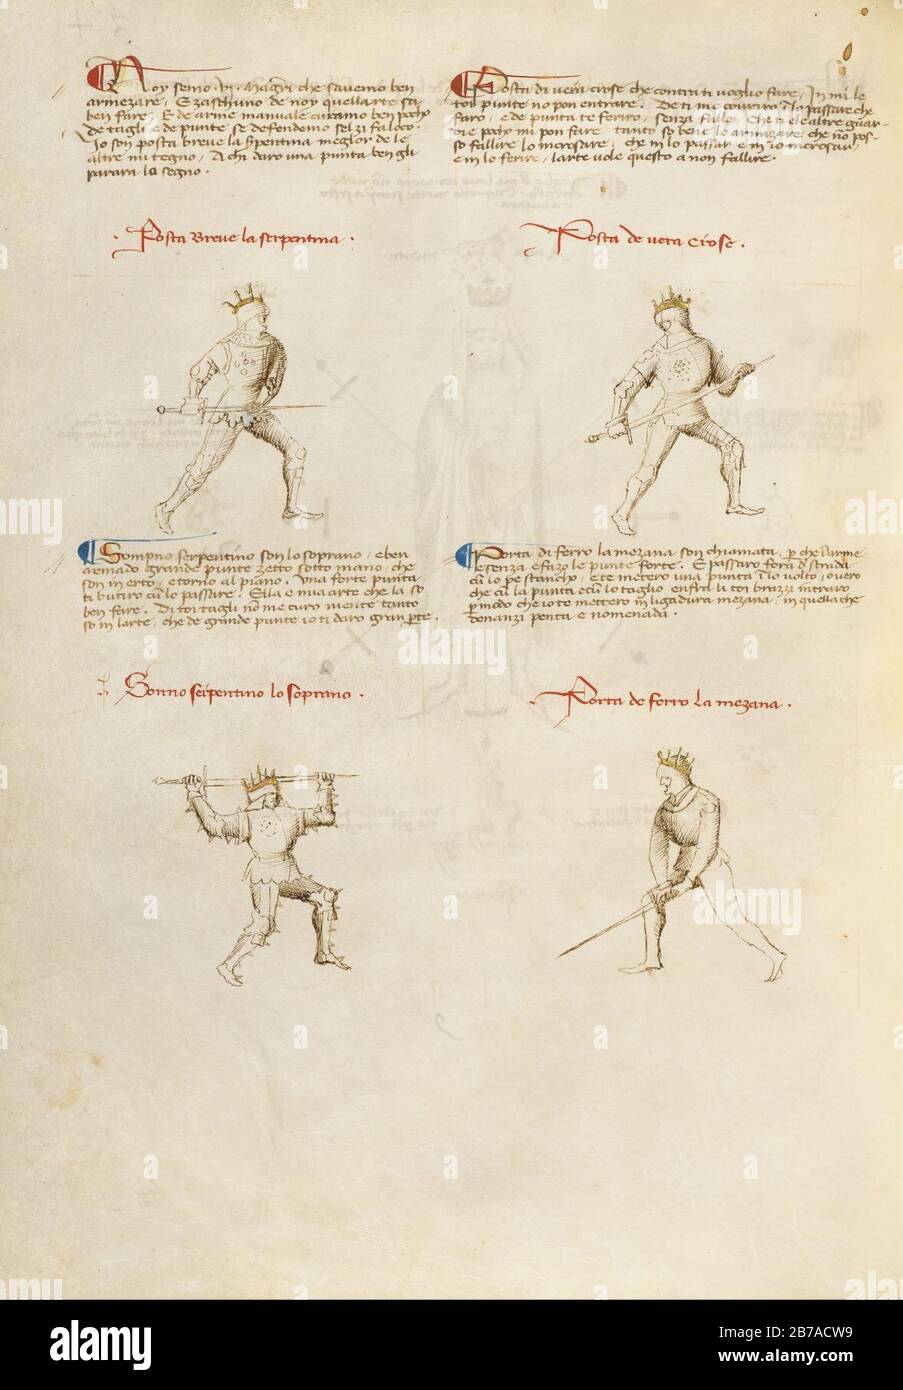 Noy semo. vi. Magistri che savemo ben
armezare, E zaschuno de noy quellarte sa
ben fare. E de arme manuale curamo ben pocho
De tagli e de punte se defendemo sel zi fa loco.
Io son posta breve la serpentina meglor de le
altre mi tegno. A chi daro una punta ben gli
parara lo segno.
Posta di vera crose che contra ti voglio fare, In mi le
toy punte no pon entrare. De ti me covriro in lo passare che
faro, e de punta te feriro, senza fallo. Che ti e le altre guar-
die e pocho mi pon fare, tanto so bene le armizare, che no pos-
so fallire lo incrosare, che in lo passar e in lo incrosar,
e in lo ferire, larte vole questo a non fallire.
Posta Breve la serpentina.
Posta de vera Crose.
Sompno serpentino son lo soprano, e ben
armado grande punte zetto sotto mano, che
son in erto, e torno al piano. Una forte punta
ti butiro cum lo passare. Ella e mia arte che la so
ben fare. Di toi tagli non me curo niente tanto
so in larte, che de grande punte io ti daro gran parte.
Porta di ferro la mezana son chiamata, per che larme
e senza e fazo le punte forte. E passaro fora de strada
cum lo pe stancho, e te metero una punta in lo volto, overo
che cum la punta e cum lo taglio enfra li toi brazzi intraro
per modo che io te mettero in ligadura mezana, in quella che
denanzi penta e nomenada.
Sonno serpentino lo soprano.
Porta de ferro la mezana.
alamy
Image ID: 2B7ACW9
www.alamy.com